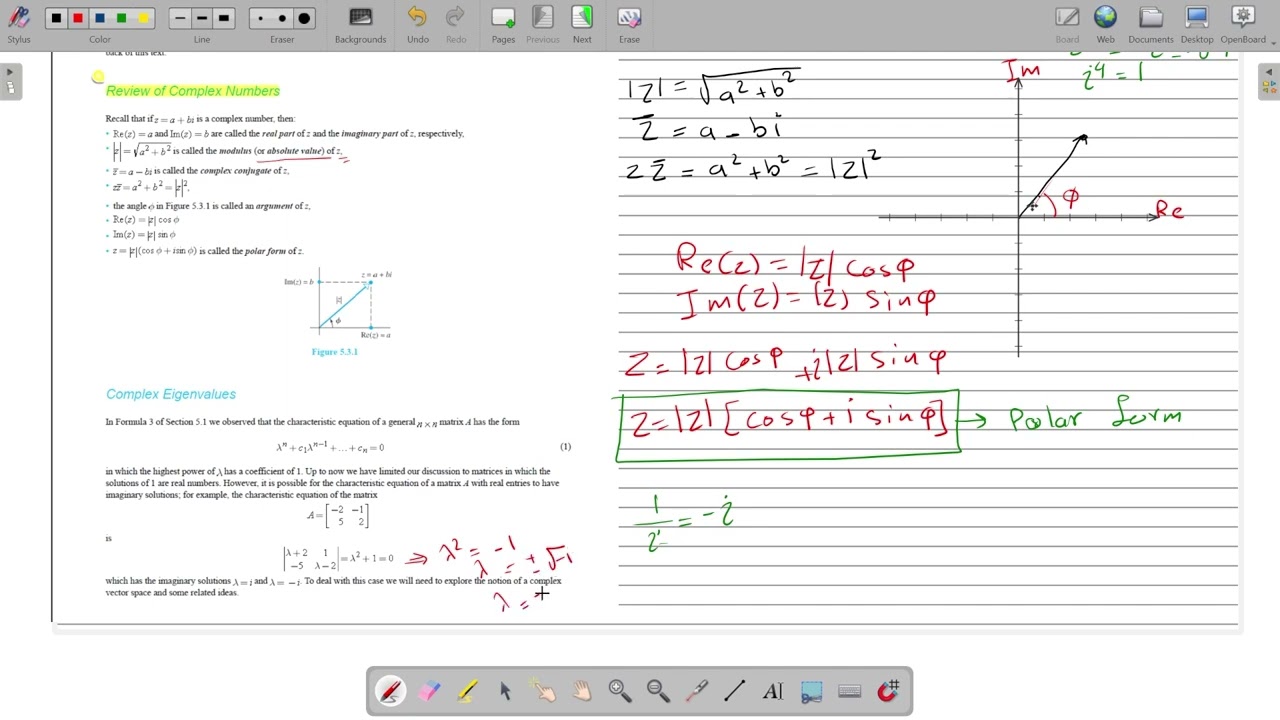 Stylus Color Line Eraser Backgrounds Undo Redo Pages Previous Next Erase Board Web Documents Desktop OpenBoard
back of this text.
Review of Complex Numbers
Recall that if z = a + bi is a complex number, then:
• Re(z) = a and Im(z) = b are called the real part of z and the imaginary part of z, respectively,
• |z| = √a² + b² is called the modulus (or absolute value) of z,
• z̄ = a − bi is called the complex conjugate of z,
• zz̄ = a² + b² = |z|²,
• the angle ϕ in Figure 5.3.1 is called an argument of z,
• Re(z) = |z| cos ϕ
• Im(z) = |z| sin ϕ
• z = |z|(cos ϕ + i sin ϕ) is called the polar form of z.
Im(z) = b
z = a + bi
|z|
ϕ
Re(z) = a
Figure 5.3.1
Complex Eigenvalues
In Formula 3 of Section 5.1 we observed that the characteristic equation of a general n × n matrix A has the form
λⁿ + c₁λⁿ⁻¹ + … + cₙ = 0 (1)
in which the highest power of λ has a coefficient of 1. Up to now we have limited our discussion to matrices in which the
solutions of 1 are real numbers. However, it is possible for the characteristic equation of a matrix A with real entries to have
imaginary solutions; for example, the characteristic equation of the matrix
A = [−2 −1
5 2]
is
|λ + 2 1
−5 λ − 2| = λ² + 1 = 0 ⇒ λ² = −1
λ = ± √−1
which has the imaginary solutions λ = i and λ = −i. To deal with this case we will need to explore the notion of a complex
vector space and some related ideas.
λ =
|z| = √a² + b²
z̄ = a − bi
z z̄ = a² + b² = |z|²
Im
i⁴ = 1
φ
Re
Re(z) = |z| cosφ
Im(z) = |z) sinφ
z = |z| cosφ + i|z| sinφ
z = |z| [cosφ + i sinφ] → Polar form
1/i = −i